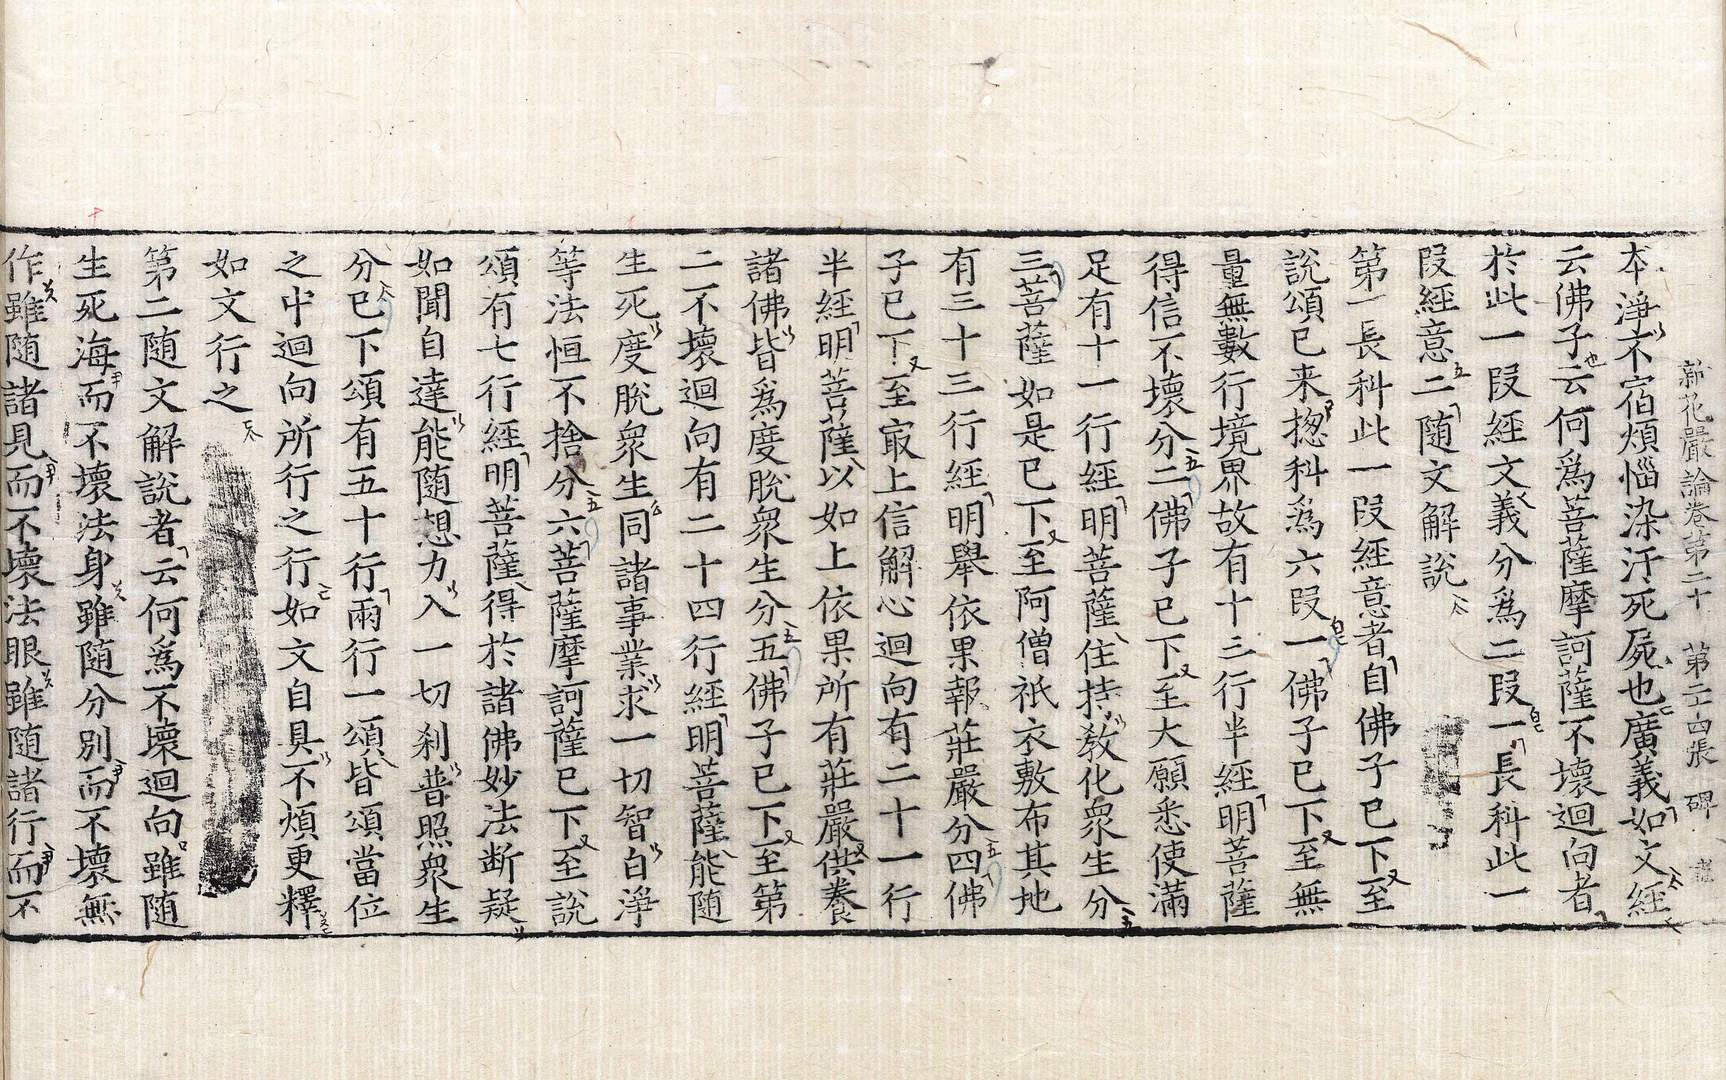 新花嚴論卷第二十 第二十四張 碑
本淨不宿煩惱染汙死屍也廣義如文經
云佛子云何爲菩薩摩訶薩不壞迴向者
於此一段經文義分爲二段一長科此一
段經意二随文解說
第一長科此一段經意者自佛子已下至
說頌已来揔科爲六段一佛子已下至無
量無數行境界故有十三行半經明菩薩
得信不壞分二佛子已下至大願悉使滿
足有十一行經明菩薩住持教化衆生分
三菩薩如是已下至阿僧祇衣敷布其地
有三十三行經明舉依果報莊嚴分四佛
子已下至㝡上信解心迴向有二十一行
半經明菩薩以如上依果所有莊嚴供養
諸佛皆爲度脫衆生分五佛子已下至第
二不壞迴向有二十四行經明菩薩能随
生死度脫衆生同諸事業求一切智白淨
等法恒不捨分六菩薩摩訶薩已下至說
頌有七行經明菩薩得於諸佛妙法断疑
如聞自達能随想力入一切刹普照衆生
分已下頌有五十行兩行一頌皆頌當位
之中迴向所行之行如文自具不煩更釋
如文行之
第二随文解說者云何爲不壞迴向雖随
生死海而不壞法身雖随分別而不壞無
作雖随諸見而不壞法眼雖随諸行而不